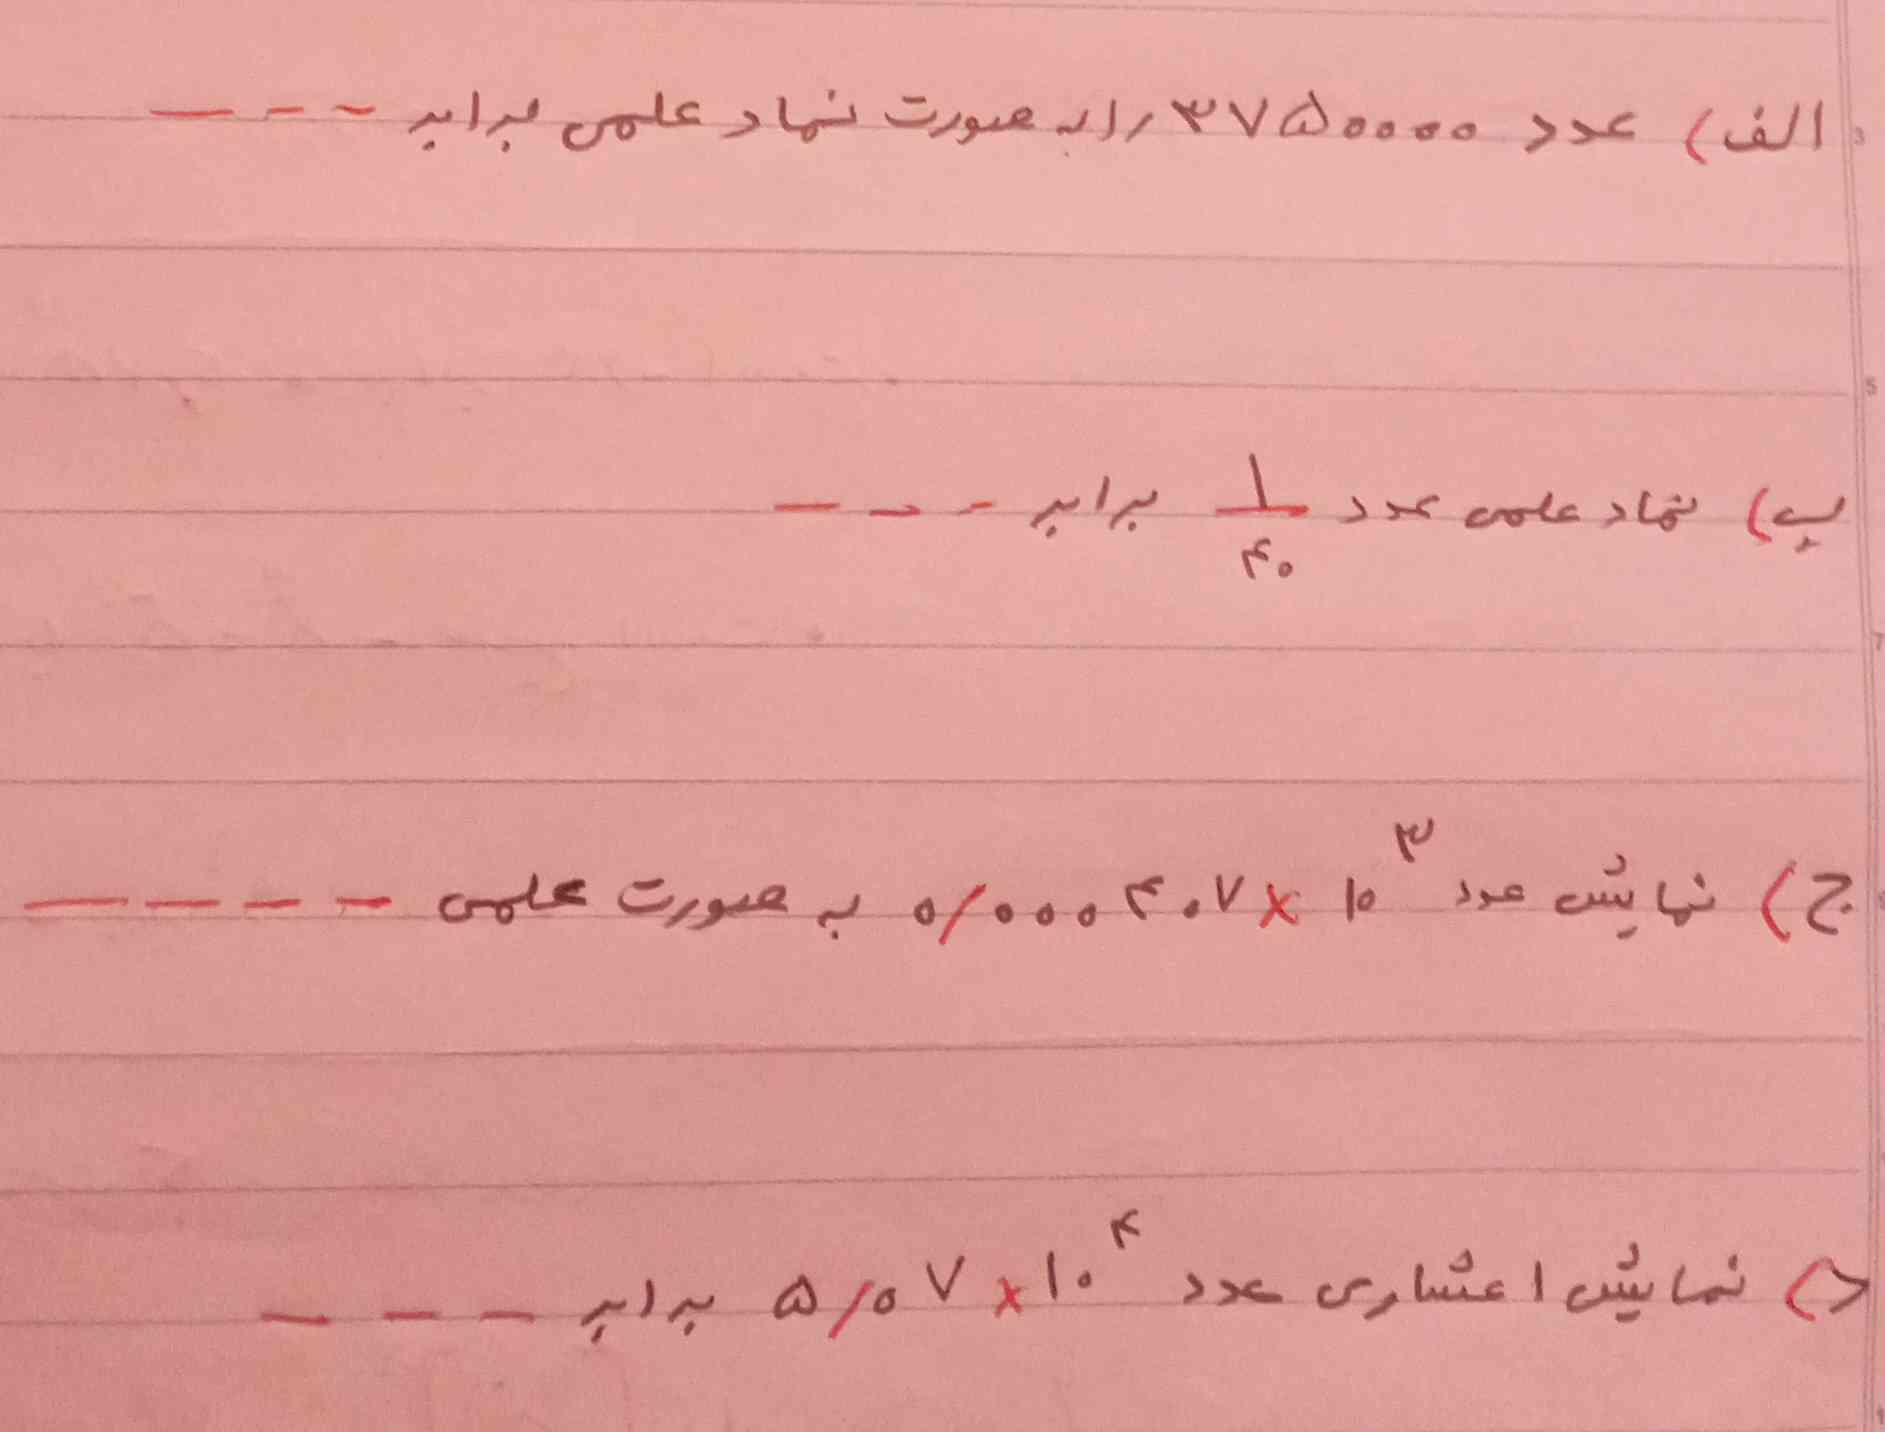 الف) عدد ۳۷۵۰۰۰۰ را به صورت نماد علمی برابر ---
ب) نماد علمی عدد ۱/۴۰ برابر ---
ج) نمایش عدد ۰/۰۰۰۴۰۷×۱۰^۳ به صورت علمی ----
د) نمایش اعشاری عدد ۵/۰۷×۱۰^۴ برابر ---